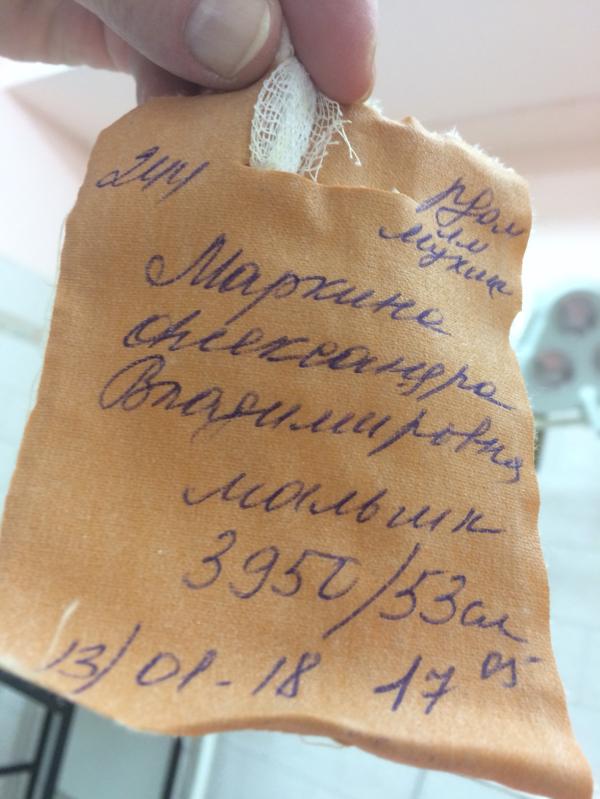 244
Маркина
Александра
Владимировна
мальчик
3950/53см
13/01-18 17 05